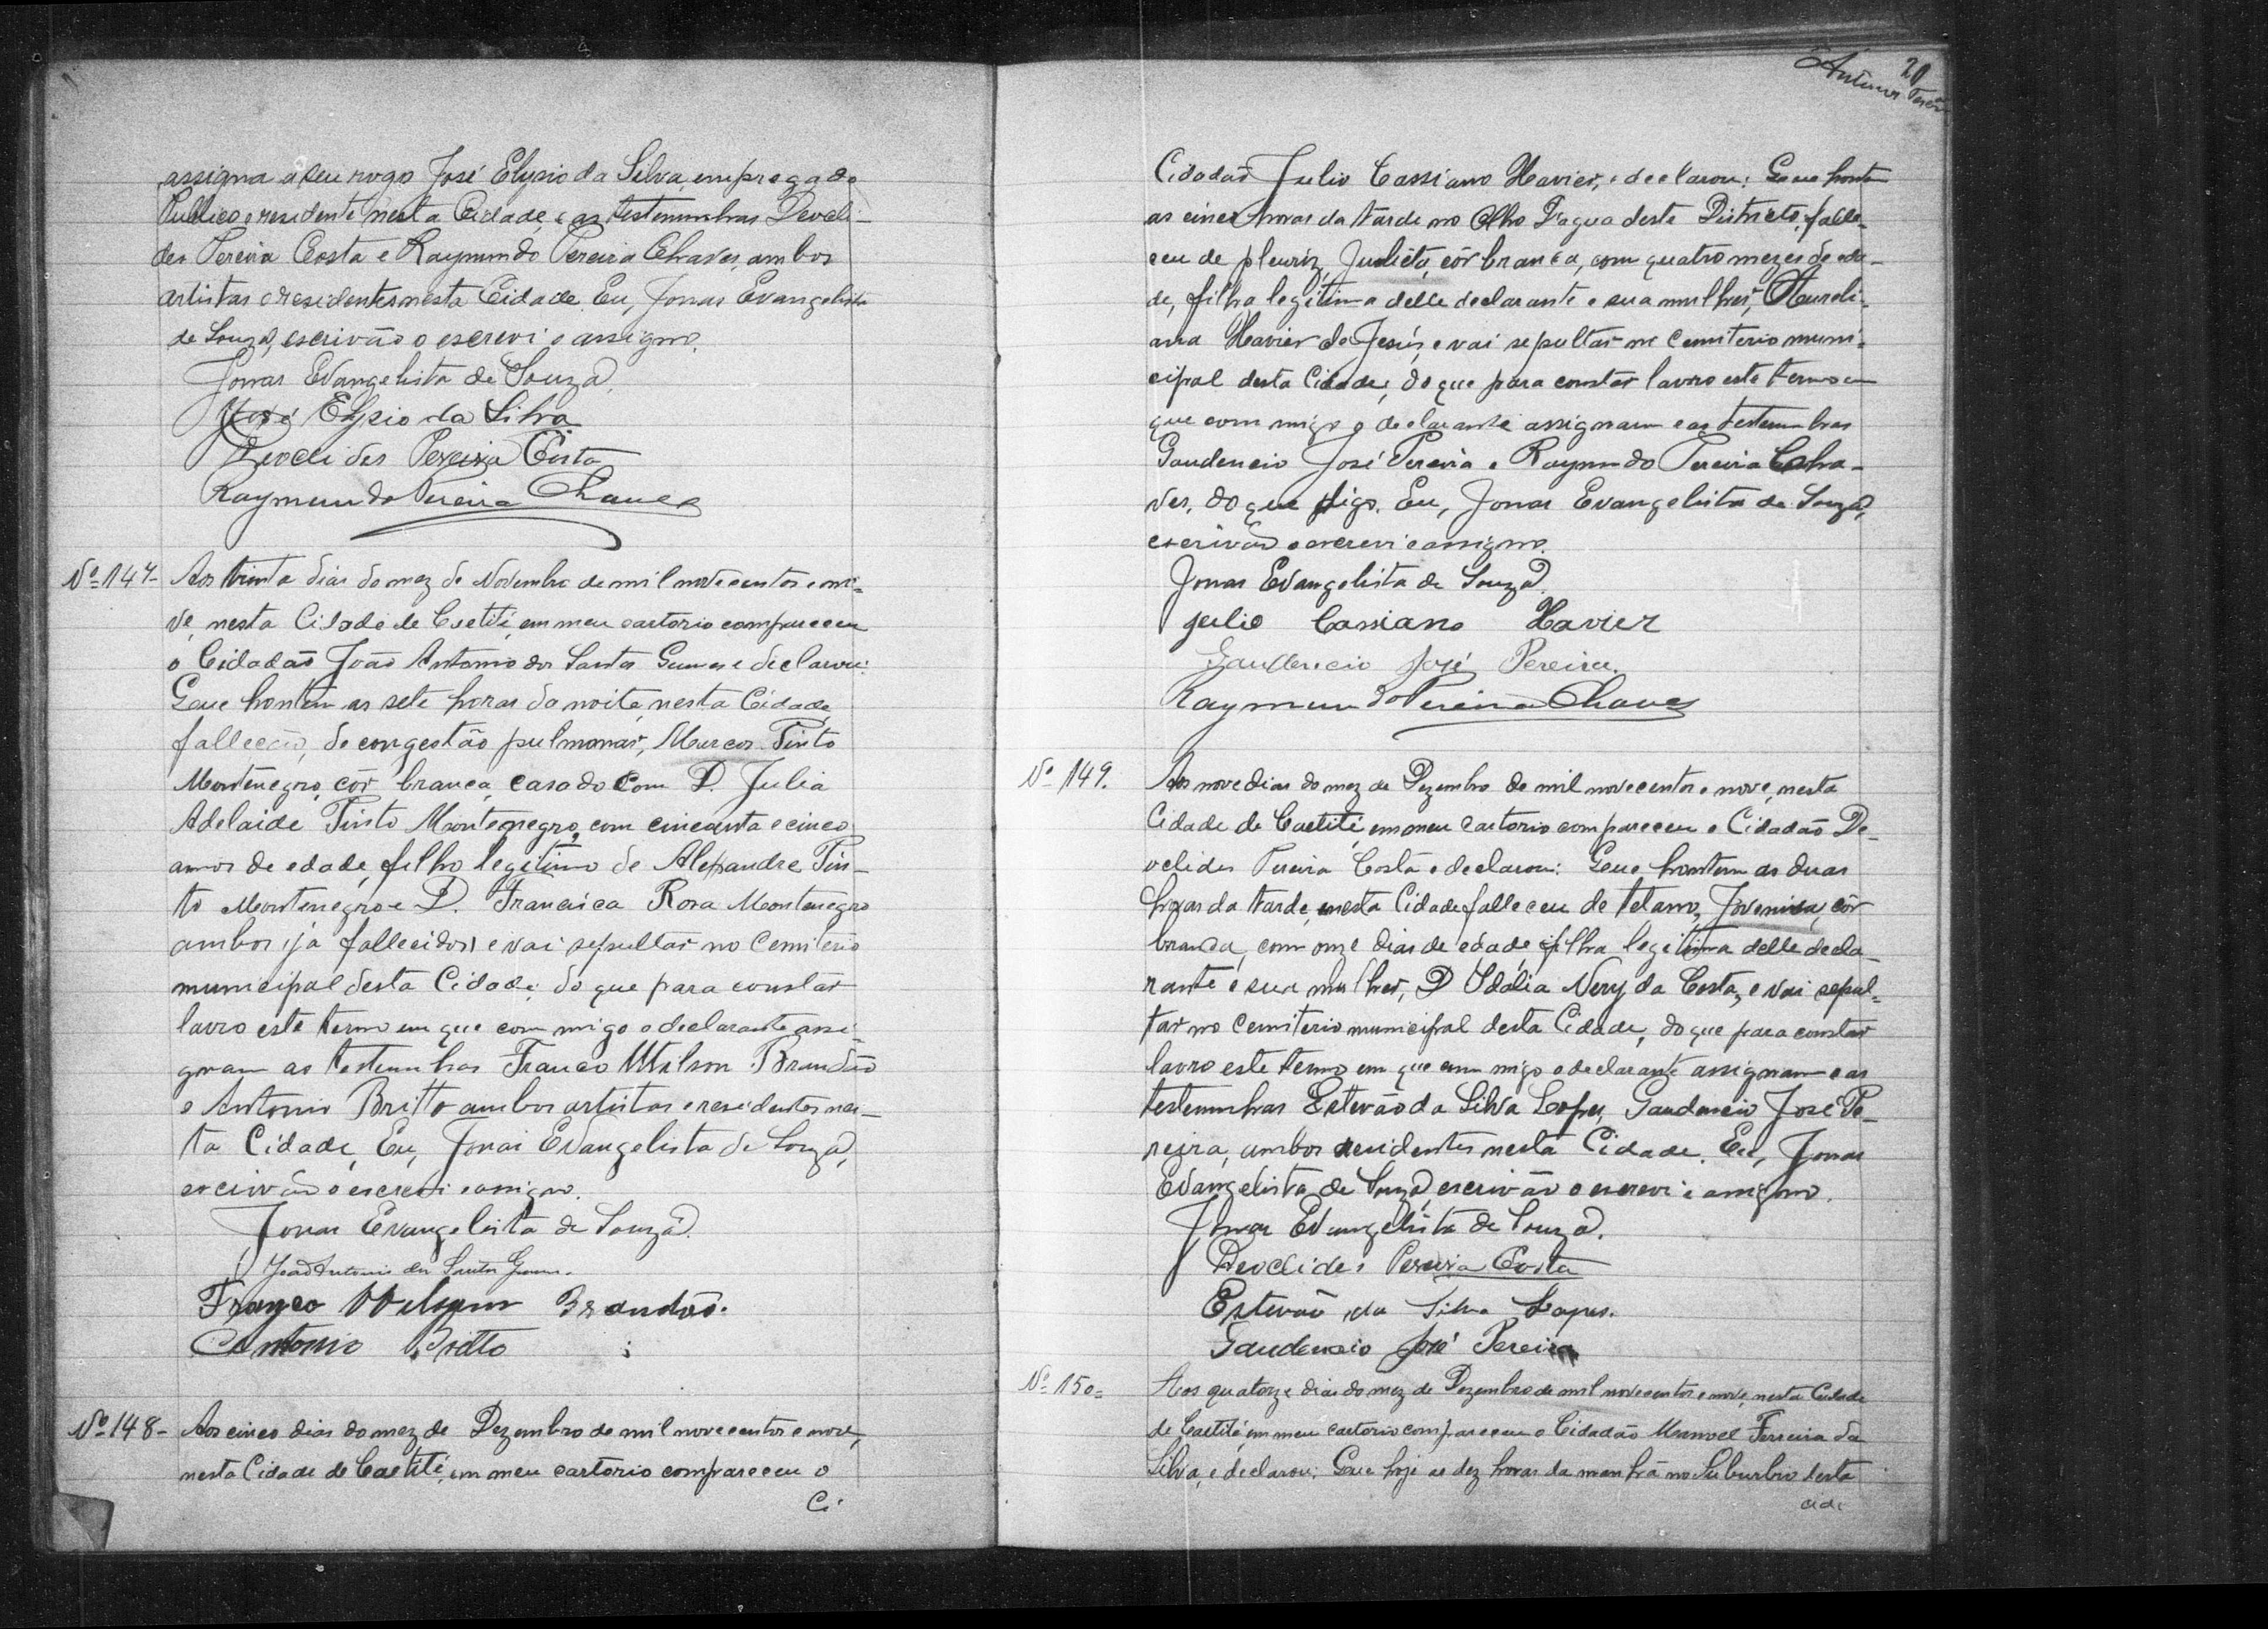 assigna a seu rogo José Elysio da Silva, empregado
Publico e residente nesta Cidade, e as testemunhas Deocli-
des Pereira Costa e Raymundo Pereira Chaves, ambos
artistas e residentes nesta Cidade. Eu, Jonas Evangelista
de Souza, escrivão o escrevi e assigno.
Jonas Evangelista de Souza
José Elysio da Silva
Deoclides Pereira Costa
Raymundo Pereira Chaves
Nº 147- Aos trinta dias do mez de Novembro de mil novecentos e no-
ve, nesta Cidade de Caetité, em meu cartorio compareceu
o Cidadão João Antonio dos Santos Gumes e declarou:
Que hontem as sete horas da noite, nesta Cidade,
falleceu, de congestão pulmonar, Marcos Pinto
Montenegro, côr branca, casado com D. Julia
Adelaide Pinto Montenegro, com cincoenta e cinco
annos de edade, filho legitimo de Alexandre Pin-
to Montenegro e D. Francisca Rosa Montenegro
ambos já fallecidos, e vai sepultar no Cemiterio
municipal desta Cidade; do que para constar
lavro este termo em que commigo o declarante assi-
gnam as testemunhas Franco Wilson Brandão
e Antonio Britto ambos artistas e residentes nes-
ta Cidade, Eu, Jonas Evangelista de Souza,
escrivão o escrevi e assigno.
Jonas Evangelista de Souza.
João Antonio dos Santos Gumes.
Franco Wilson Brandão.
Antonio Britto
Nº 148- Aos cinco dias do mez de Dezembro de mil novecentos e nove,
nesta Cidade de Caetité, em meu cartorio compareceu o
Ci
20
Cidadão Julio Cassiano Xavier, e declarou: Que hontem
as cinco horas da tarde no Olho D'agua deste Districto, falle-
ceu de pleuriz, Julieta, côr branca, com quatro mezes de eda-
de, filha legitima delle declarante e sua mulher, Aureli-
ana Xavier de Jesús, e vai sepultar no Cemiterio muni-
cipal desta Cidade; do que para constar lavro este termo em
que commigo o declarante assignam e as testemunhas
Gaudencio José Pereira e Raymundo Pereira Cha-
ves, do que digo. Eu, Jonas Evangelista de Souza,
escrivão o escrevi e assigno.
Jonas Evangelista de Souza.
Julio Cassiano Xavier
Gaudencio José Pereira.
Raymundo Pereira Chaves
Nº 149. Aos nove dias do mez de Dezembro de mil novecentos e nove, nesta
Cidade de Caetité, em meu Cartorio compareceu o Cidadão De-
oclides Pereira Costa e declarou: Que hontem as duas
horas da tarde, nesta Cidade falleceu de tetano, Jovenisa, côr
branca, com onze dias de edade, filha legitima delle decla-
rante e sua mulher, D. Idalia Nery da Costa, e vai sepul-
tar no Cemiterio municipal desta Cidade, do que para constar
lavro este termo em que commigo o declarante assignam e as
testemunhas Estevão da Silva Lopes, Gaudencio José Pe-
reira, ambos residentes nesta Cidade. Eu, Jonas
Evangelista de Souza, escrivão o escrevi e assigno.
Jonas Evangelista de Souza.
Deoclides Pereira Costa
Estevão da Silva Lopes.
Gaudencio José Pereira
Nº 150- Aos quatorze dias do mez de Dezembro de mil novecentos e nove, nesta Cidade
de Caetité, em meu cartorio compareceu o Cidadão Manoel Ferreira da
Silva, e declarou: Que hoje as dez horas da manhã no Suburbio desta
cida